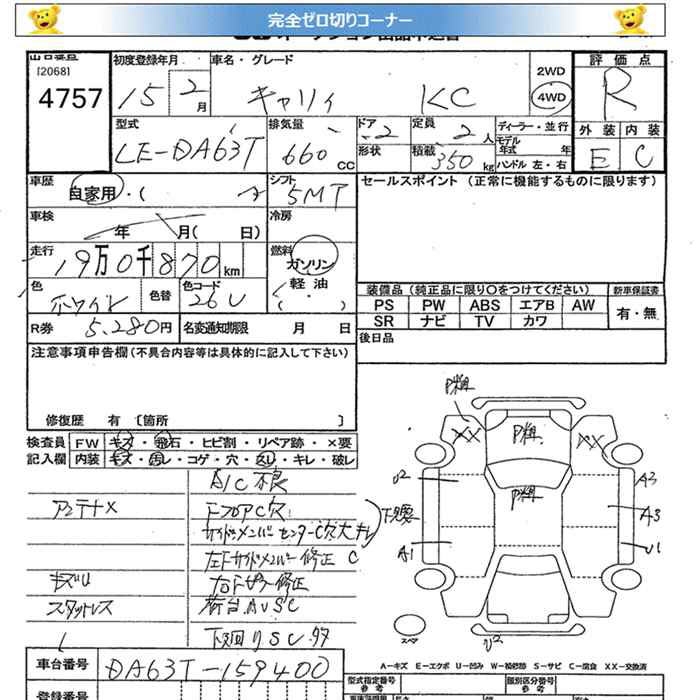 完全ゼロ切りコーナー
[2068]
4757
初度登録年月
15 2月
車名・グレード
キャリィ KC
2WD
4WD
評価点
R
型式
LE-DA63T
排気量
660 CC
ドア
2
定員
2人
形状
積載
350 kg
ディーラー・並行
モデル年式 年
ハンドル 左・右
外装 内装
E C
車歴
自家用・(
シフト
5MT
セールスポイント (正常に機能するものに限ります)
車検
年 月( 日)
冷房
走行
19万0千870km
燃料
ガソリン
軽油・
( )
色
ホワイト
色替
色コード
26U
装備品(純正品に限り○をつけてください)
新車保証書
PS PW ABS エアB AW
SR ナビ TV カワ
有・無
R券 5,280円
名変通知期限 月 日
後日品
注意事項申告欄(不具合内容等は具体的に記入して下さい)
修復歴 有 [箇所 ]
検査員 FW キズ・飛石・ヒビ割・リペア跡・×要
記入欄 内装 キズ・汚レ・コゲ・穴・スレ・キレ・破レ
A/C不良
アンテナX
下フロアC穴
サイドメンバーセンターC穴大
左下サイドメンバー修正 C
右下 修正
スタットレス
荷台AUSC
下廻りSC
P粗
XX
P粗
XX
P粗
U2
A3
A3
A1
U1
U2
スペア
A-キズ E-エクボ U-凹み W-補修跡 S-サビ C-腐食 XX-交換済
車台番号
DA63T-159400
型式指定番号
参考
類別区分番号
参考
登録番号